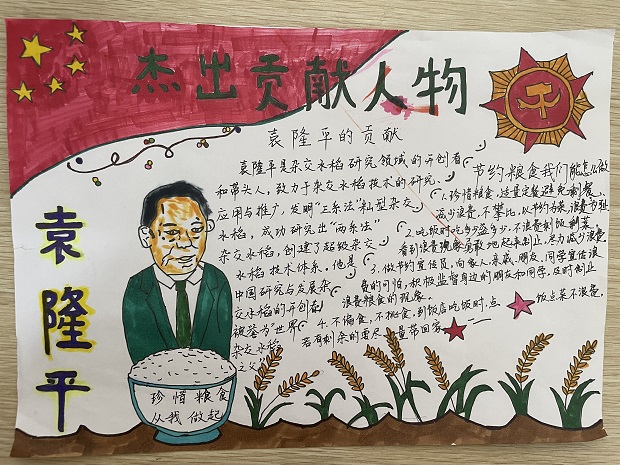 杰出贡献人物
袁隆平
袁隆平的贡献
袁隆平是杂交水稻研究领域的开创者
和带头人，致力于杂交水稻技术的研究、
应用与推广，发明"三系法"籼型杂交
水稻，成功研究出"两系法"
杂交水稻，创建了超级杂交
水稻技术体系。他是
中国研究与发展杂
交水稻的开创者
被誉为"世界
杂交水稻
之父"
节约粮食我们能怎么做
1.珍惜粮食，适量定餐避免剩餐，
减少浪费，不攀比，以节约为荣，浪费为耻
2.吃饭时吃多少盛多少，不浪费剩饭剩菜
看到浪费现象勇敢地起来制止，尽力减少浪费
3.做节约宣传员，向家人，亲戚，朋友，同学宣传浪
费的可怕，积极监督身边的朋友和同学，及时制止
浪费粮食的现象。
4.不偏食，不挑食，到饭店吃饭时，点饭点菜不浪费，
若有剩余的要尽量带回家
珍惜粮食
从我做起